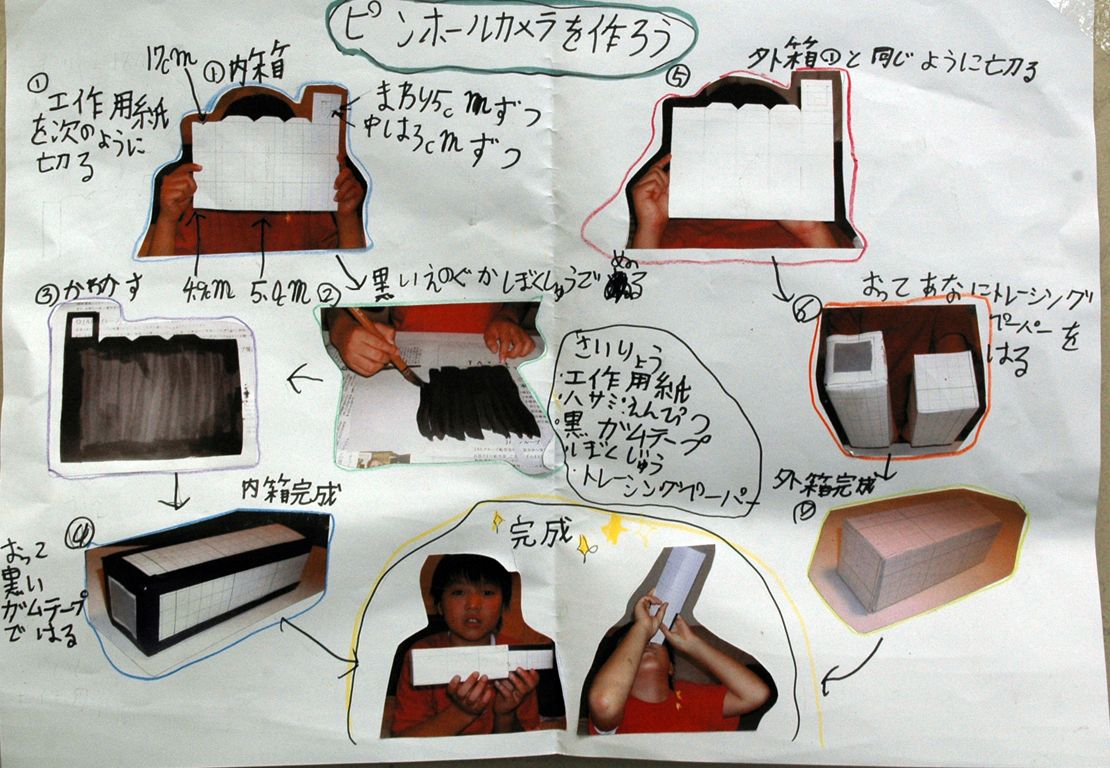 ピンホールカメラを作ろう
①
工作用紙
を次のように
切る
17cm
①内箱
まわり5cmずつ
中は3cmずつ
4.9cm
5.1cm
②
黒いえのぐかぼくじゅうでぬる
③かわかす
内箱完成
④
おって
黒い
ガムテープ
ではる
⑤
外箱①と同じように切る
⑥
おってあなにトレーシング
ペーパーを
はる
外箱完成
ざいりょう
・工作用紙
・ハサミ・えんぴつ
・黒ガムテープ
・ぼくじゅう
・トレーシングペーパー
完成